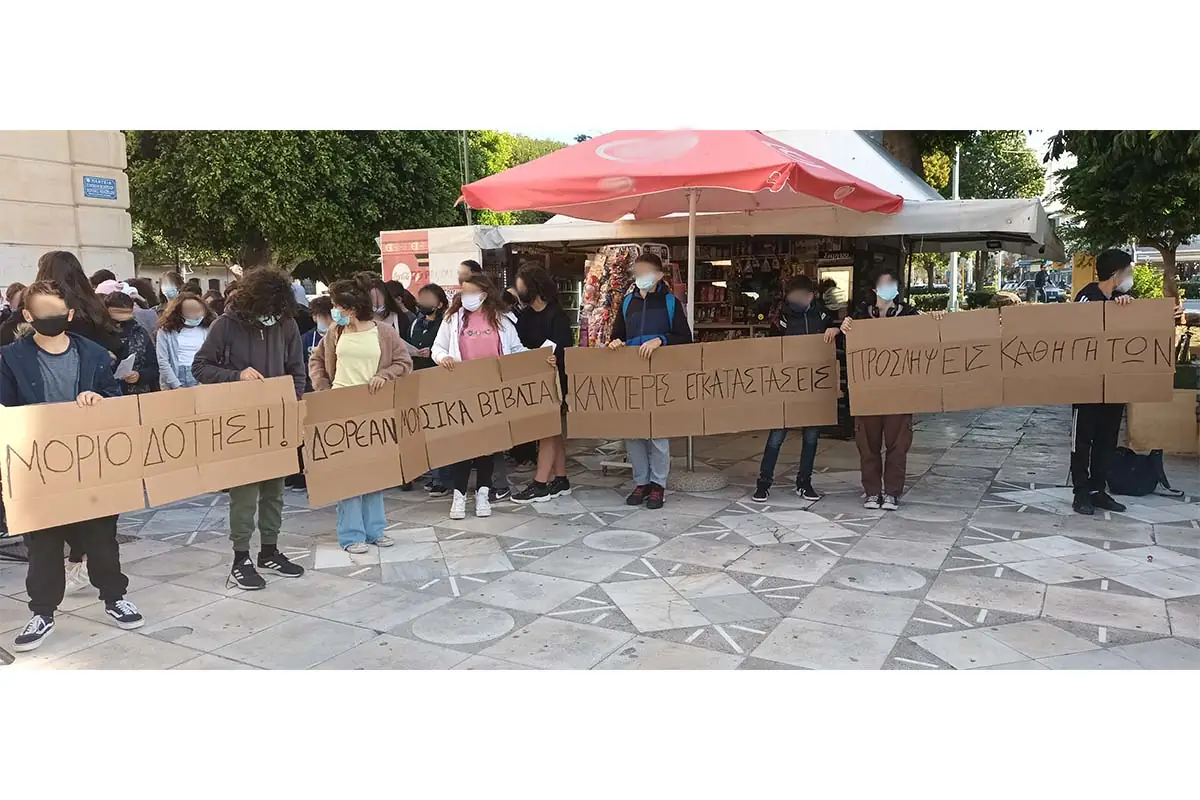 ΜΟΡΙΟΔΟΤΗΣΗ!
ΔΩΡΕΑΝ ΜΟΥΣΙΚΑ ΒΙΒΛΙΑ
ΚΑΛΥΤΕΡΕΣ ΕΓΚΑΤΑΣΤΑΣΕΙΣ
ΠΡΟΣΛΗΨΕΙΣ ΚΑΘΗΓΗΤΩΝ
ΠΛΑΤΕΙΑ